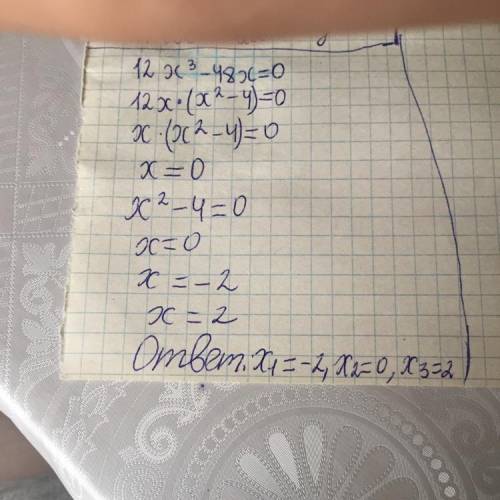 12x³-48x=0
12x·(x²-4)=0
x·(x²-4)=0
x=0
x²-4=0
x=0
x=-2
x=2
Ответ. x₁=-2, x₂=0, x₃=2